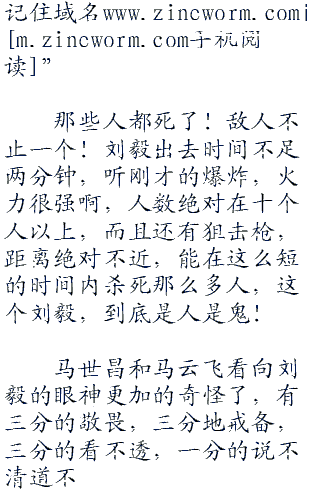 记住域名www.zincworm.com|
[m.zincworm.com手机阅
读]”
那些人都死了！敌人不
止一个！刘毅出去时间不足
两分钟，听刚才的爆炸，火
力很强啊，人数绝对在十个
人以上，而且还有狙击枪，
距离绝对不近，能在这么短
的时间内杀死那么多人，这
个刘毅，到底是人是鬼！
马世昌和马云飞看向刘
毅的眼神更加的奇怪了，有
三分的敬畏，三分地戒备，
三分的看不透，一分的说不
清道不